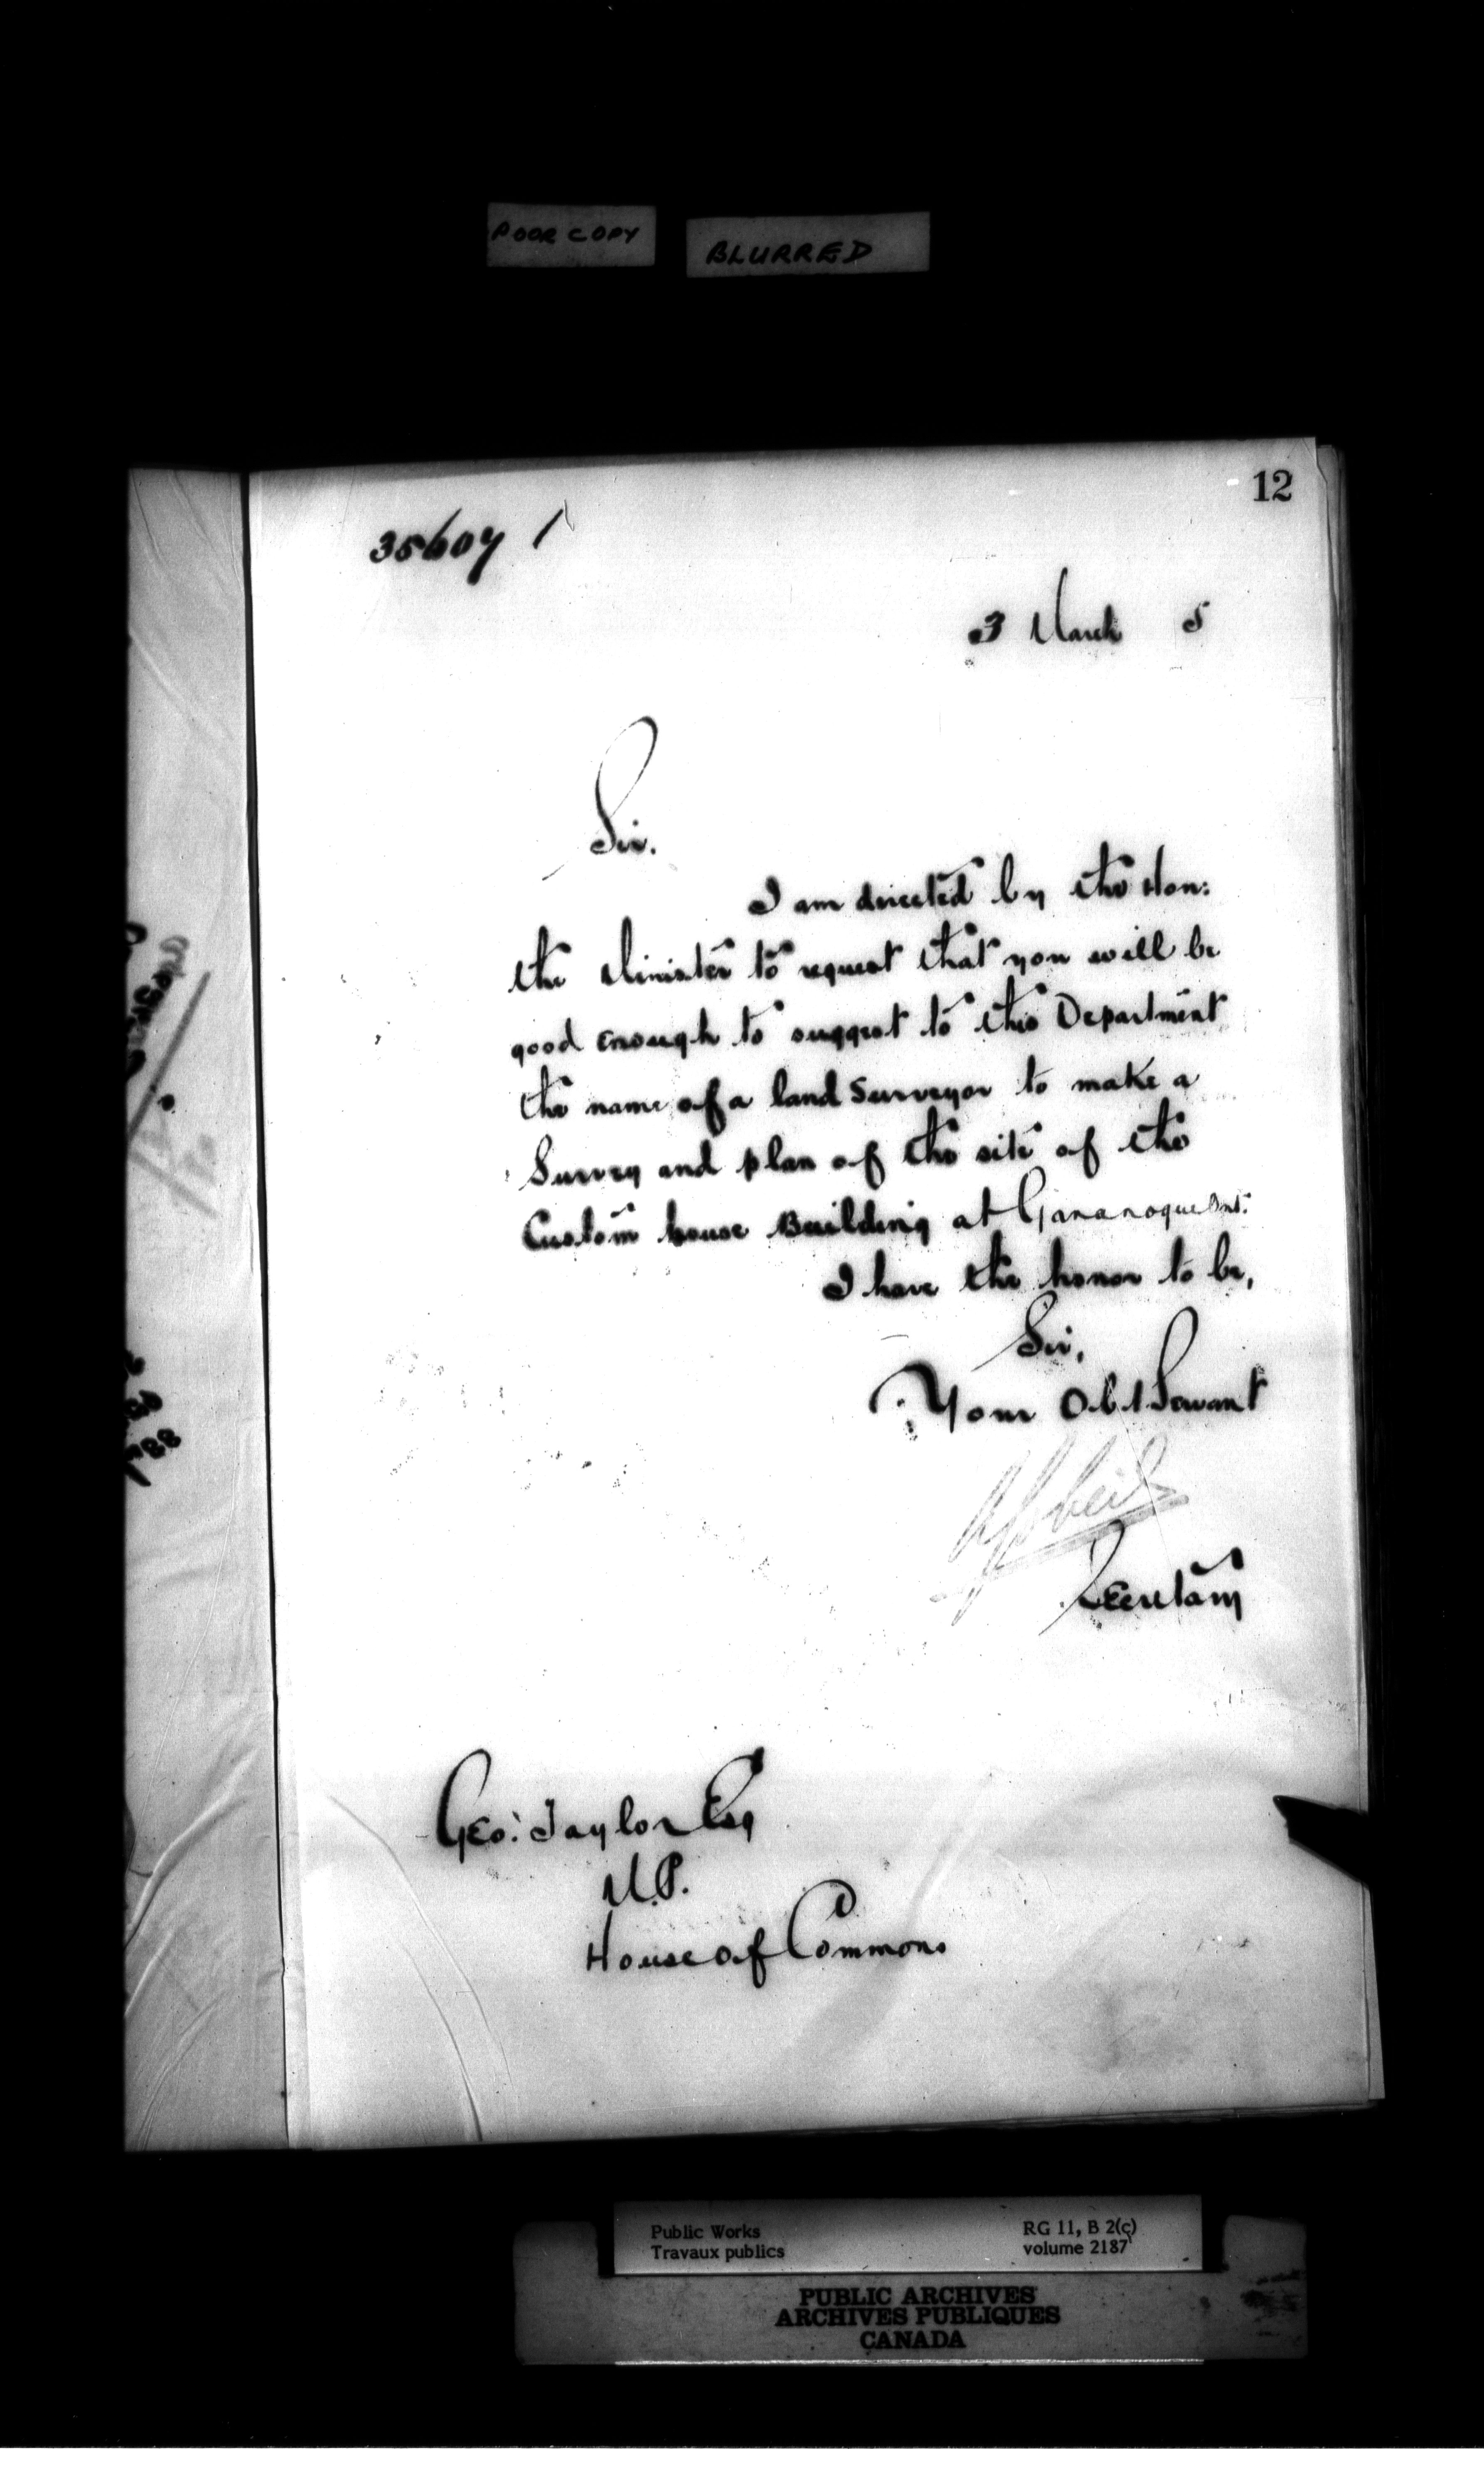 POOR COPY
BLURRED
12
35607 1
3 March 5
Sir.
I am directed by the Hon:
the Minister to request that you will be
good enough to suggest to this Department
the name of a land Surveyor to make a
Survey and plan of the site of the
Custom house Building at Gananoque Ont:
I have the honor to be,
Sir,
Your Obt Servant
Secretary
Geo: Taylor Esq
M.P.
House of Commons
Public Works
Travaux publics
RG 11, B 2(c)
volume 2187
PUBLIC ARCHIVES
ARCHIVES PUBLIQUES
CANADA